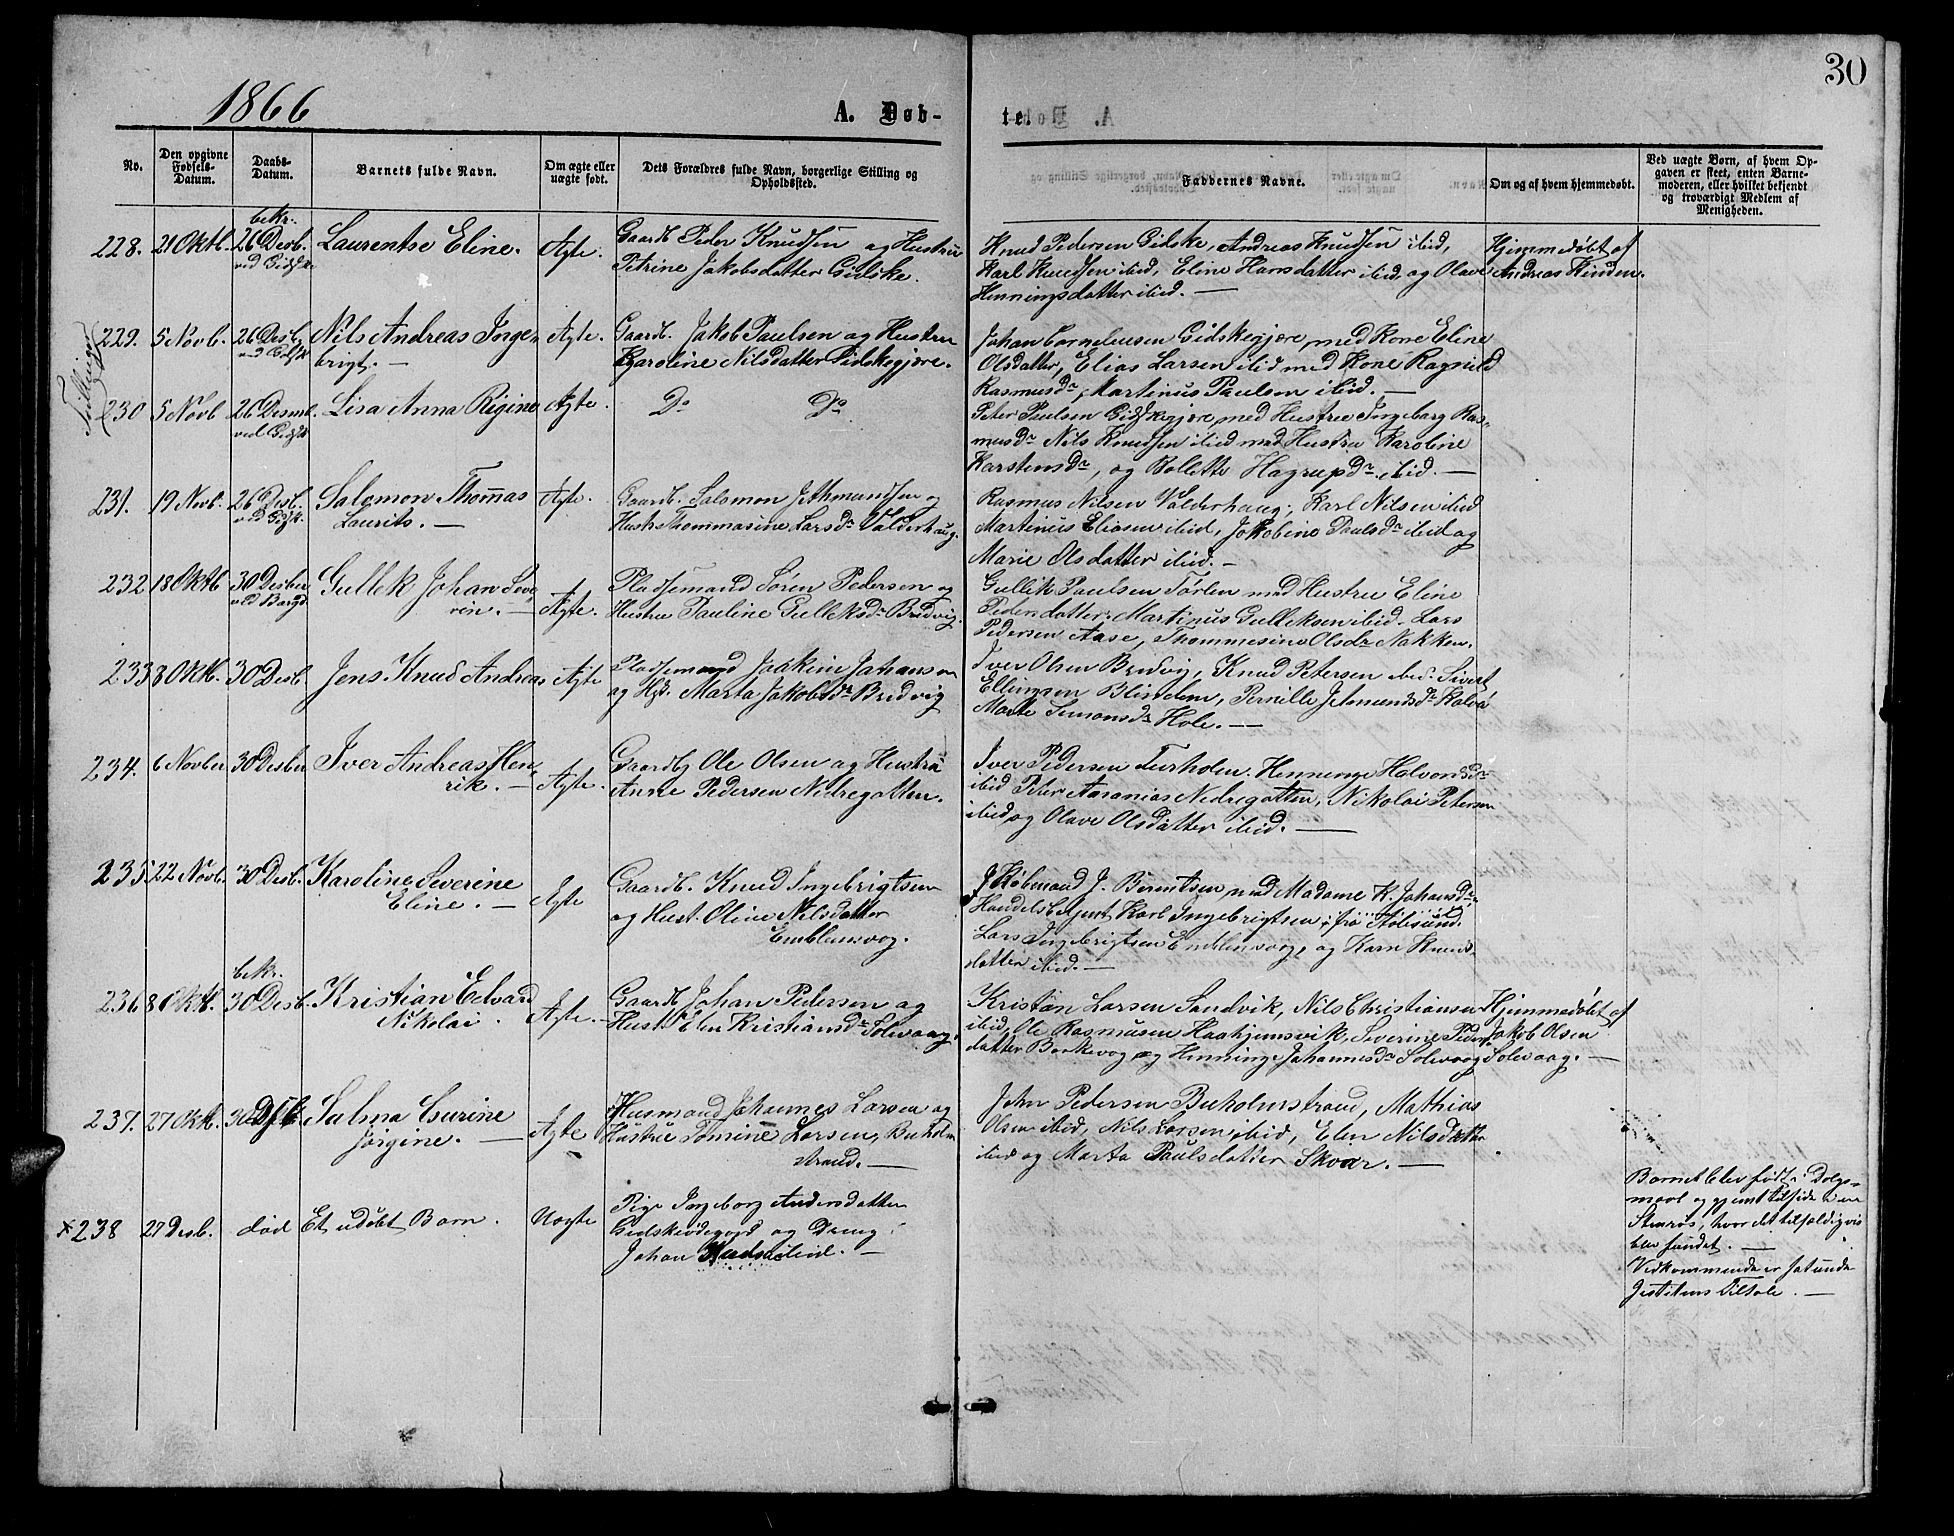 30
1866
A. Døb-
te.
No.
Den opgivne Fødsels-Datum.
Daabs-Datum.
Barnets fulde Navn.
Om ægte eller uægte født.
Dets Forældres fulde Navn, borgerlige Stilling og Opholdssted.
Faddernes Navne.
Om og af hvem hjemmedøbt.
Ved uægte Børn, af hvem Opgaven er skeet, enten Barnemoderen, eller hvilket bekjendt og troværdigt Medlem af Menigheden.
228. 21 Oktb. bekr. 26 Desb. ved Gidsk. Laurentse Eline. Ægte.
Gaardb. Peder Knudsen og Hustru
Petrine Jakobsdatter Gidske.
Knud Pedersen Gidske, Andreas Knudsen ibid,
Karl Knudsen ibid, Eline Hansdatter ibid og Olave
Henningsdatter ibid. —
Hjemmedøbt af
Andreas
Tvillinger
229. 5 Novb. 26 Desb. ved Gidsk Nils Andreas Inge-
brigt. — Ægte.
Gaardb. Jakob Paulsen og Hustru
Karoline Nilsdatter Gidskegjøre.
Johan Cornelensen Gidskegjøre, med Kone Eline
Olsdatter, Elias Larsen ibid med Kone Ragnild
Rasmusdr, Martinus Paulsen ibid. —
230 5 Novb 26 Desmb. ved Gidsk Lisa Anna Rigine Ægte.
Do Do
Peter Paulsen Gidskegjøre, med Hustru Ingeborg Ras-
musdr Nils Knudsen ibid med Hustru Karoline
Karstensdr, og Bolette Hagrupdr ibid. —
231. 19 Novb. 26 Desb. ved Gidsk. Salomon Thommas
Laurits. — Ægte.
Gaardb. Salamon Jethmundsen og
Hust. Thommasine Larsdr Valderhaug.
Rasmus Nilsen Valderhaug, Karl Nilsen ibid
Martinus Eliasen ibid, Jakobine Paulsdr ibid og
Marie Olsdatter ibid. —
232 18 Oktb 30 Desber ved Borgd Gullek Johan Seve-
rin. — Ægte.
Pladsemand Søren Pedersen og
Hustru Pauline Gulleksdr Bredvig.
Gullik Paulsen Tørlen med Hustru Eline
Pedersdatter, Martinus Gulleksen ibid. Lars
Pedersen Aase, Thommesine Olsdr Nakken.
233 8 Oktb. 30 Desb. Jens Knud Andreas Ægte
Pladsemand Joakim Johansen
og Hst. Marta Jakobsdr Bredvig
Iver Olsen Bredvig, Knud Petersen ibid. Sivert
Ellingsen Blindem, Pernille Jetmundsdr Kalvø
Marte Simonsdr Hole. —
234. 6 Novber 30 Desber Iver Andreas Hen-
rik. — Ægte.
Gaardbg Ole Olsen og Hustru
Anne Pedersen Nedregotten.
Iver Pedersen Tuholm. Henninge Halvorsdr
ibid Peter Ananias Nedregotten, Nikolai Petersen
ibid og Olave Olsdatter ibid. —
235 22 Novb. 30 Desb. Karoline Severine
Eline. — Ægte
Gaardb. Knud Ingebrigtsen
og Hust. Oline Nilsdatter
Emblemsvog.
Kjøbmand J. Berentsen med Madame K. Johansdr
Handelsbetjent Karl Ingebrigtsen, fra Aalesund.
Lars Ingebrigtsen Emblemsvog, og Karn Knuds-
datter ibid. —
236 8 Oktb. bekr. 30 Desb. Kristian Edvard
Nikolai. Ægte.
Gaardb Johan Pedersen og
Hust. Elen Kristiansdr Solevaag.
Kristian Larsen Sandvik, Nils Christiansen
ibid, Ole Rasmusen Haahjemsvik, Severine Peders-
datter Barkevog og Henninge Johannesdr Solevaag
Hjemmedøbt af
Jakob Olsen
Solevaag. —
237. 27 Oktb. 30 Dsb Salma Gurine
Jørgine. — Ægte
Husmand Johannes Larsen og
Hustru Tomine Larsen, Buholm-
strand. —
John Pedersen Buholmstrand, Mathias
Olsen ibid, Nils Larsen ibid, Elen Nilsdatter
ibid og Marta Paulsdatter Skvar. —
x 238 27 Desb. død Et udøbt Barn. Uægte
Pige Ingeborg Andersdatter
Gidskeødegård og Dreng
Johan Knudsen ibid. —
Barnet blev født i Dølgs-
maal og gjemt tilside i en
Stenrøs, hvor det tilfældigvis
blev fundet. —
Vedkommende er sat under
Justitiens Tiltale. —